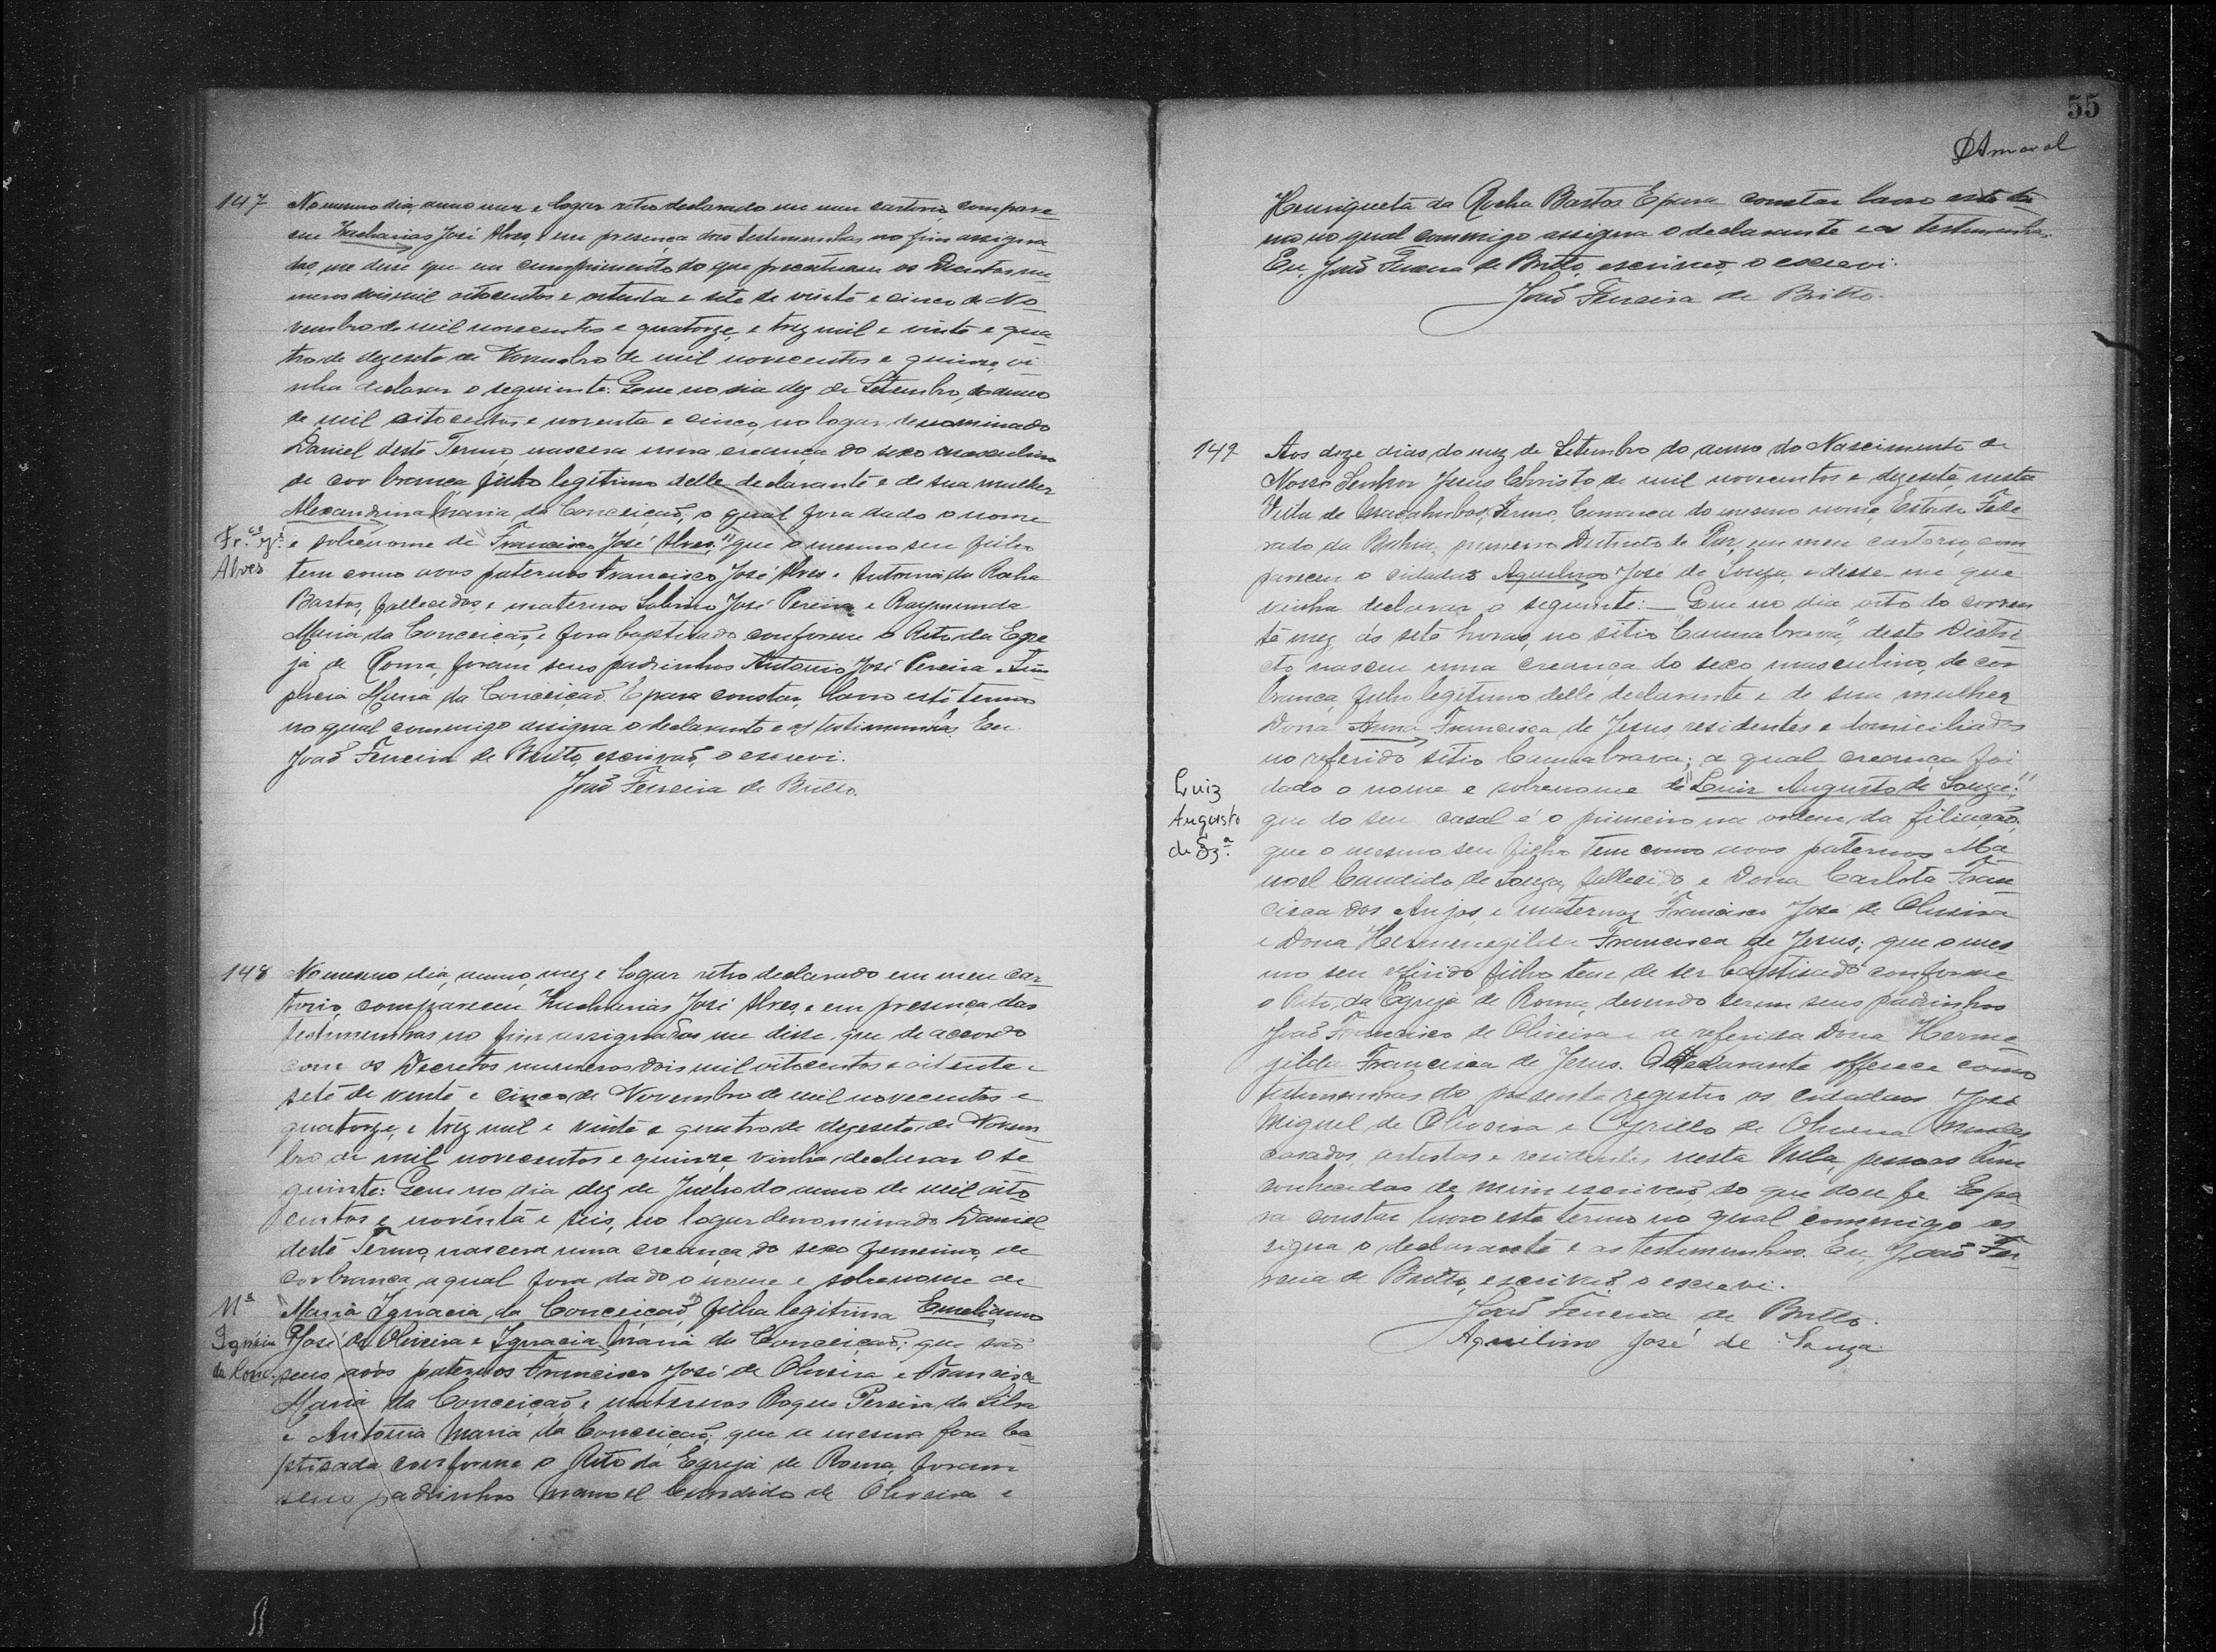 147 No mesmo dia, anno mez e logar retro declarado em meu cartorio, compare
ceu Zacharias José Alves, e em presença das testemunhas no fim assigna
das, me disse que em cumprimento do que preceituam os Decretos nu
meros dois mil oitocentos e oitenta e sete de vinte e cinco de No
vembro de mil novecentos e quatorze, e trez mil e vinte e qua
tro de dezesete de Novembro de mil novecentos e quinze, vi
nha declarar o seguinte: Que no dia dez de Setembro, do anno
de mil oitocentos e noventa e cinco, no logar denominado
Daniel deste Termo, nascera uma creança do sexo masculino
de cor branca, filho legitimo delle declarante e de sua mulher
Alexandrina Maria da Conceição, o qual fora dado o nome
Fr.co J.é
Alves
e sobrenome de "Francisco José Alves," que o mesmo seu filho
tem como avos paternos Francisco José Alves e Antonia da Rocha
Bastos, fallecidos, e maternos Sabino José Pereira e Raymunda
Maria da Conceição, e fora baptisado conforme o Rito da Egre
ja de Roma, foram seus padrinhos Antonio José Pereira e
Maria da Conceição. E para constar, lavro este termo
no qual commigo assigna o declarante e as testemunhas. Eu
João Ferreira de Britto, escrivão, o escrevi.
João Ferreira de Britto.
148 No mesmo dia, anno, mez e logar retro declarado em meu car
torio, compareceu Zacharias José Alves, e em presença das
testemunhas no fim assignadas me disse que de accordo
com os Decretos numeros dois mil oitocentos e oitenta e
sete de vinte e cinco de Novembro de mil novecentos e
quatorze, e trez mil e vinte e quatro de dezesete de Novem
bro de mil novecentos e quinze, vinha declarar o se
guinte: Que no dia dez de Julho do anno de mil oito
centos e noventa e seis, no logar denominado Daniel
deste Termo, nascera uma creança do sexo femenino, de
cor branca, a qual fora dado o nome e sobrenome de
M.a
Ignácia
da Conc.
"Maria Ignacia da Conceição," filha legitima Emeliano
José de Oliveira e Ignacia Maria da Conceição; que são
seus avós paternos Francisco José de Oliveira e Francisca
Maria da Conceição, e maternos Roque Pereira da Silva
e Antonia Maria da Conceição, que a mesma fora ba
ptisada conforme o Rito da Egreja de Roma, foram
seus padrinhos Manoel Candido de Oliveira e
55
DAmaral
Henriqueta da Rocha Bastos E para constar lavro este ter
mo no qual commigo assigna o declarante e as testemunhas.
Eu, João Ferreira de Britto, escrivão, o escrevi.
João Ferreira de Britto.
149 Aos doze dias do mez de Setembro do anno do Nascimento de
Nosso Senhor Jesus Christo de mil novecentos e dezesete, nesta
Villa de Macahubas, Termo, Comarca do mesmo nome, Estado Fede
rado da Bahia, primeiro Districto de Paz, em meu cartorio, com
pareceu o cidadão Aquilino José de Souza, e disse-me que
vinha declarar o seguinte: — Que no dia oito do corren
te mez, ás sete horas, no sitio "Cannabrava," deste Distri
cto, nasceu uma creança do sexo masculino, de cor
branca, filho legitimo delle declarante e de sua mulher
Dona Anna Francisca de Jesus, residentes e domiciliados
no referido sitio Cannabrava; a qual creança foi
Luiz
Augusto
de Sz.a
dado o nome e sobrenome de "Luiz Augusto de Souza;"
que do seu casal é o primeiro na ordem da filiação;
que o mesmo seu filho tem como avos paternos Ma
noel Candido de Souza, fallecido, e Dona Carlota Fran
cisca dos Anjos, e maternos Francisco José de Oliveira
e Dona Hermenegilda Francisca de Jesus; que o mes
mo seu referido filho tem de ser baptisado conforme
o Rito, da Egreja de Roma, devendo serem seus padrinhos
João Francisco de Oliveira e a referida Dona Herme
gilda Francisca de Jesus. O declarante offerece como
testemunhas do presente registro os cidadãos José
Miguel de Oliveira e Cyrillo de Oliveira Mendes
casados, artistas e residentes nesta Villa, pessoas bem
conhecidas de mim escrivão, do que dou fe. E pa
ra constar lavro este termo no qual commigo as
signa o declarante e as testemunhas. Eu, João Fer
reira de Britto, escrivão, o escrevi.
João Ferreira de Britto.
Aquilino José de Souza.